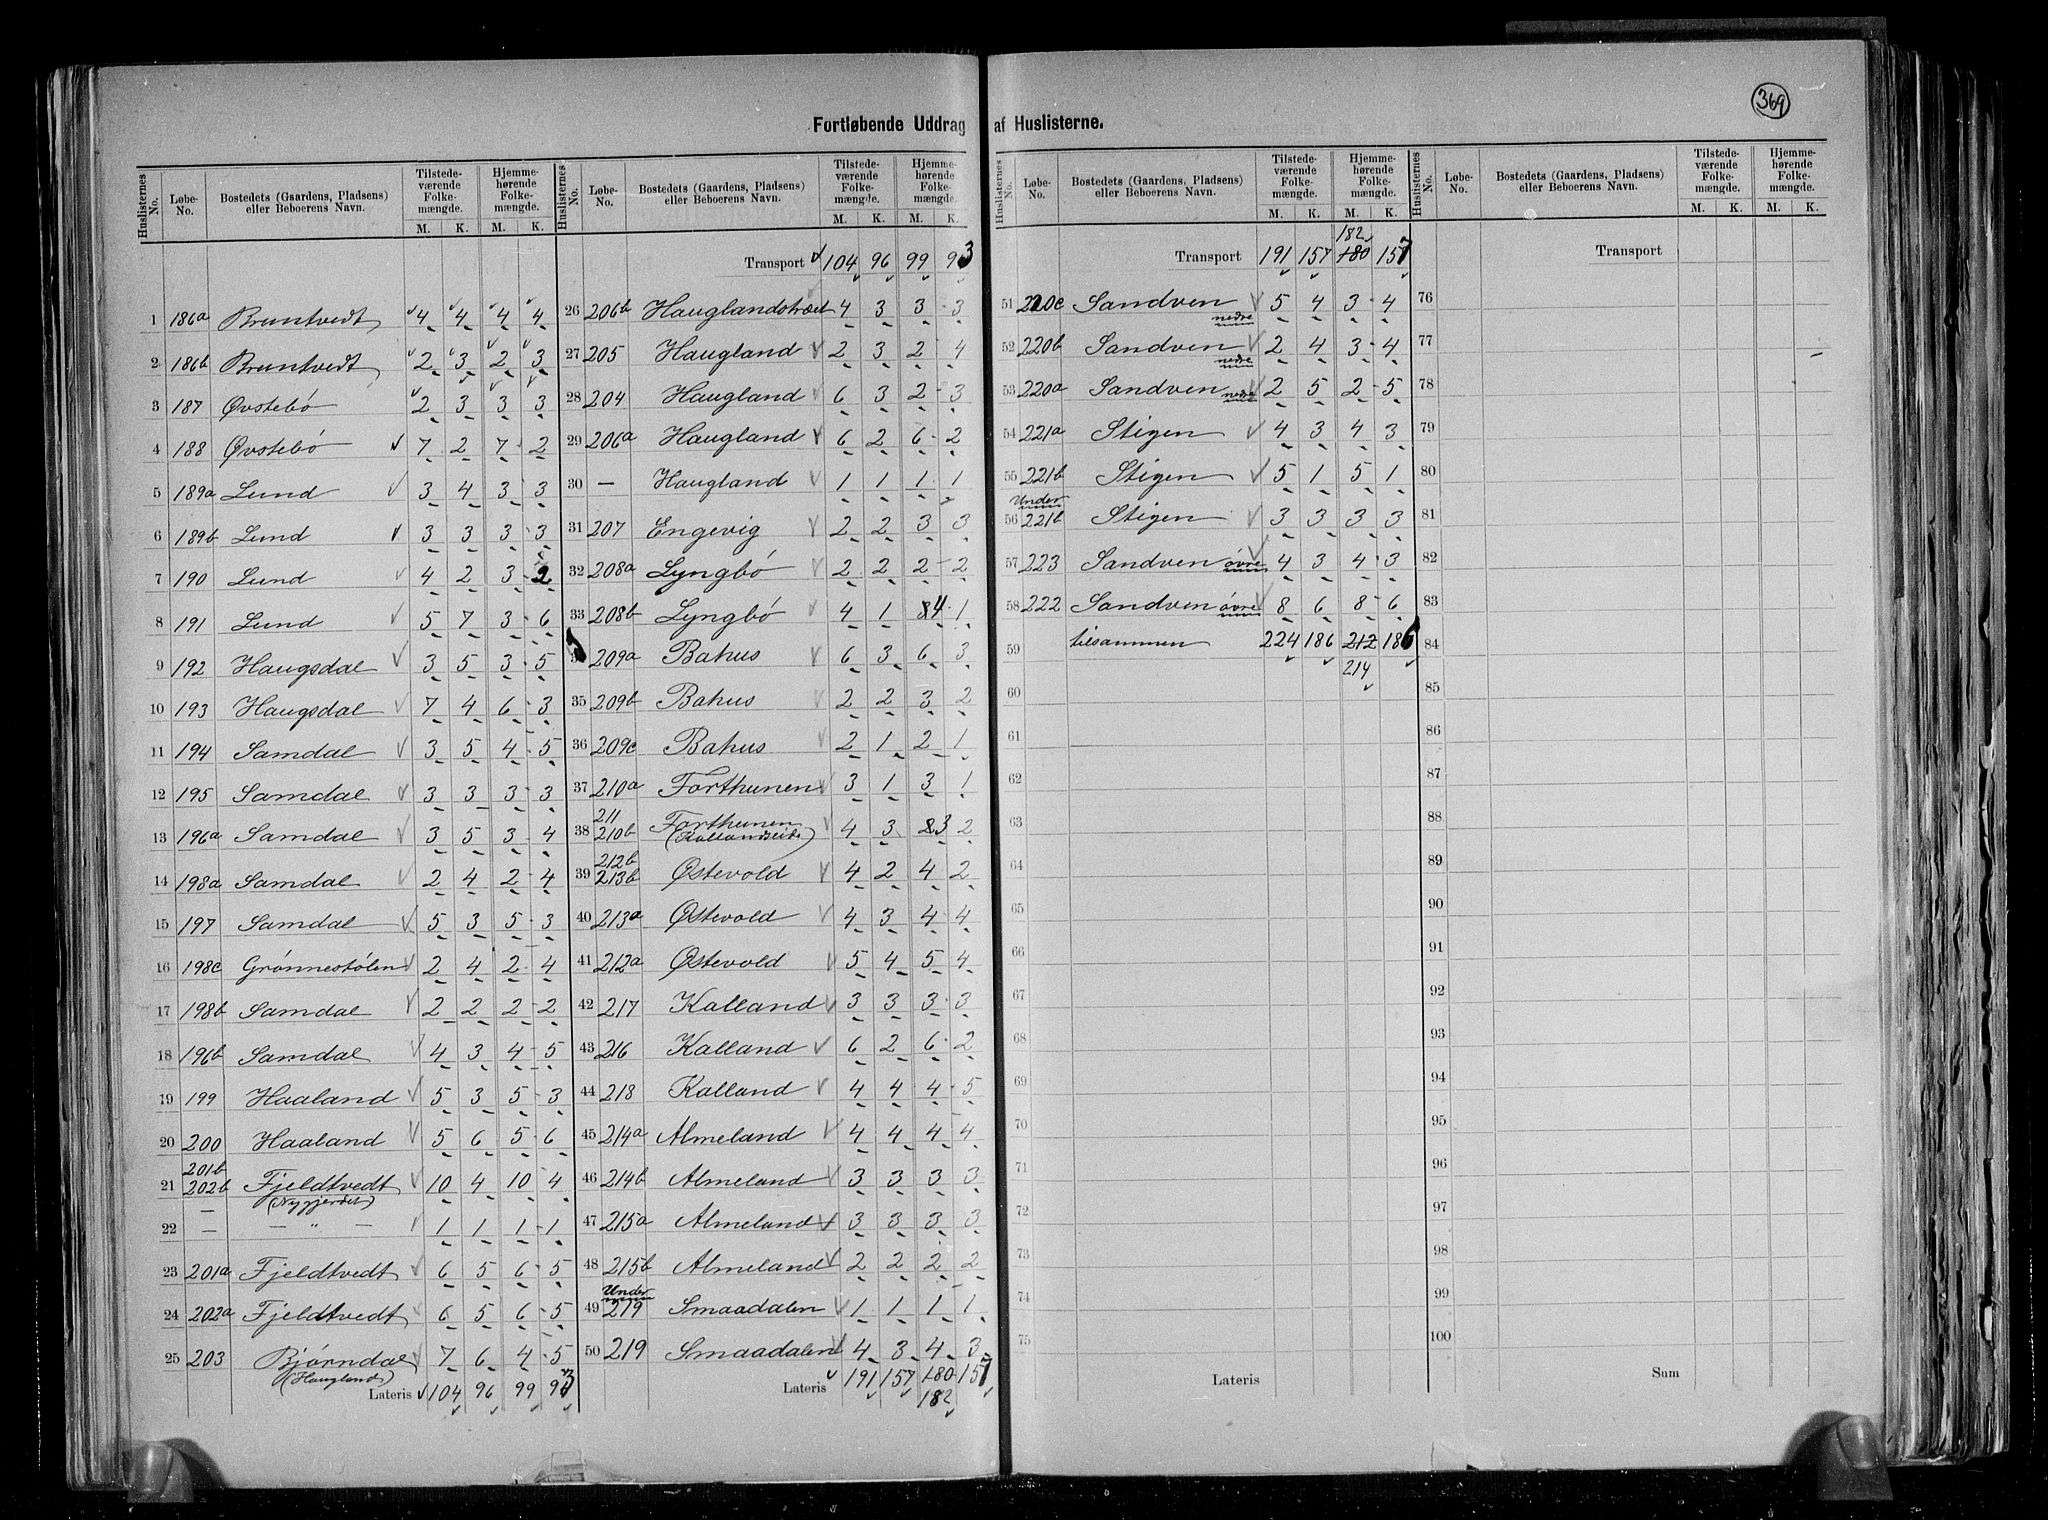 369
Fortløbende Uddrag af Huslisterne.
Huslisternes No. | Løbe-No. | Bostedets (Gaardens, Pladsens) eller Beboerens Navn. | Tilstedeværende Folkemængde. M. K. | Hjemmehørende Folkemængde. M. K.
1 186a Bruntvedt 4 4 4 4
2 186b Bruntvedt 2 3 2 3
3 187 Øvstebø 2 3 3 3
4 188 Øvstebø 7 2 7 2
5 189a Lund 3 4 3 3
6 189b Lund 3 3 3 3
7 190 Lund 4 2 3 2
8 191 Lund 5 7 3 6
9 192 Haugsdal 3 5 3 5
10 193 Haugsdal 7 4 6 3
11 194 Samdal 3 5 4 5
12 195 Samdal 3 3 3 3
13 196a Samdal 3 5 3 4
14 198a Samdal 2 4 2 4
15 197 Samdal 5 3 5 3
16 198c Grönnestölen 2 4 2 4
17 198b Samdal 2 2 2 2
18 196b Samdal 4 3 4 5
19 199 Haaland 5 3 5 3
20 200 Haaland 5 6 5 6
201b
21 202b Fjeldtvedt 10 4 10 4
(Nygjerdet)
22 — — " — 1 1 1 1
23 201a Fjeldtvedt 6 5 6 5
24 202a Fjeldtvedt 6 5 6 5
25 203 Bjørndal 7 6 4 5
(Haugland)
Lateris 104 96 99 93
Huslisternes No. | Løbe-No. | Bostedets (Gaardens, Pladsens) eller Beboerens Navn. | Tilstedeværende Folkemængde. M. K. | Hjemmehørende Folkemængde. M. K.
Transport 104 96 99 93
26 206b Hauglandstræet 4 3 3 3
27 205 Haugland 2 3 2 4
28 204 Haugland 6 3 2 3
29 206a Haugland 6 2 6 2
30 — Haugland 1 1 1 1
31 207 Engevig 2 2 3 3
32 208a Lyngbø 2 2 2 2
33 208b Lyngbø 4 1 4 1
209a Bahus 6 3 6 3
35 209b Bahus 2 2 3 2
36 209c Bahus 2 1 2 1
37 210a Forthunen 3 1 3 1
211
38 210b Forthunen 4 3 3 2
(Kallandseide)
212b
39 213b Østevold 4 2 4 2
40 213a Østevold 4 3 4 4
41 212a Østevold 5 4 5 4
42 217 Kalland 3 3 3 3
43 216 Kalland 6 2 6 2
44 218 Kalland 4 4 4 5
45 214a Almeland 4 4 4 4
46 214b Almeland 3 3 3 3
47 215a Almeland 3 3 3 3
48 215b Almeland 2 2 2 2
Under
49 219 Smaadalen 1 1 1 1
50 219 Smaadalen 4 3 4 3
Lateris 191 157 180 157
182
Huslisternes No. | Løbe-No. | Bostedets (Gaardens, Pladsens) eller Beboerens Navn. | Tilstedeværende Folkemængde. M. K. | Hjemmehørende Folkemængde. M. K.
182
Transport 191 157 180 157
51 220c Sandven nedre 5 4 3 4
52 220b Sandven nedre 2 4 3 4
53 220a Sandven nedre 2 5 2 5
54 221a Stigen 4 3 4 3
55 221b Stigen 5 1 5 1
Under
56 221b Stigen 3 3 3 3
57 223 Sandven øvre 4 3 4 3
58 222 Sandven øvre 8 6 8 6
59 tilsammen 224 186 212 186
214
60
61
62
63
64
65
66
67
68
69
70
71
72
73
74
75
Lateris
Huslisternes No. | Løbe-No. | Bostedets (Gaardens, Pladsens) eller Beboerens Navn. | Tilstedeværende Folkemængde. M. K. | Hjemmehørende Folkemængde. M. K.
Transport
76
77
78
79
80
81
82
83
84
85
86
87
88
89
90
91
92
93
94
95
96
97
98
99
100
Sum